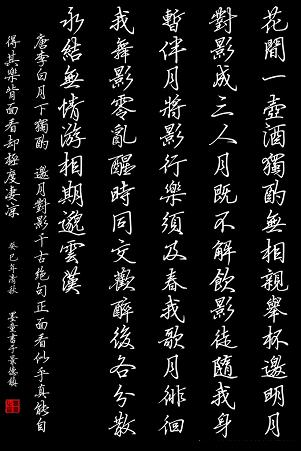 花間一壺酒獨酌無相親舉杯邀明月
對影成三人月既不解飲影徒隨我身
暫伴月將影行樂須及春我歌月徘徊
我舞影零亂醒時同交歡醉後各分散
永結無情游相期邈雲漢
唐李白月下獨酌 邀月對影千古絕句正面看似乎真能自
得其樂背面看却極度凄凉 癸巳年清秋 墨童書于景德鎮